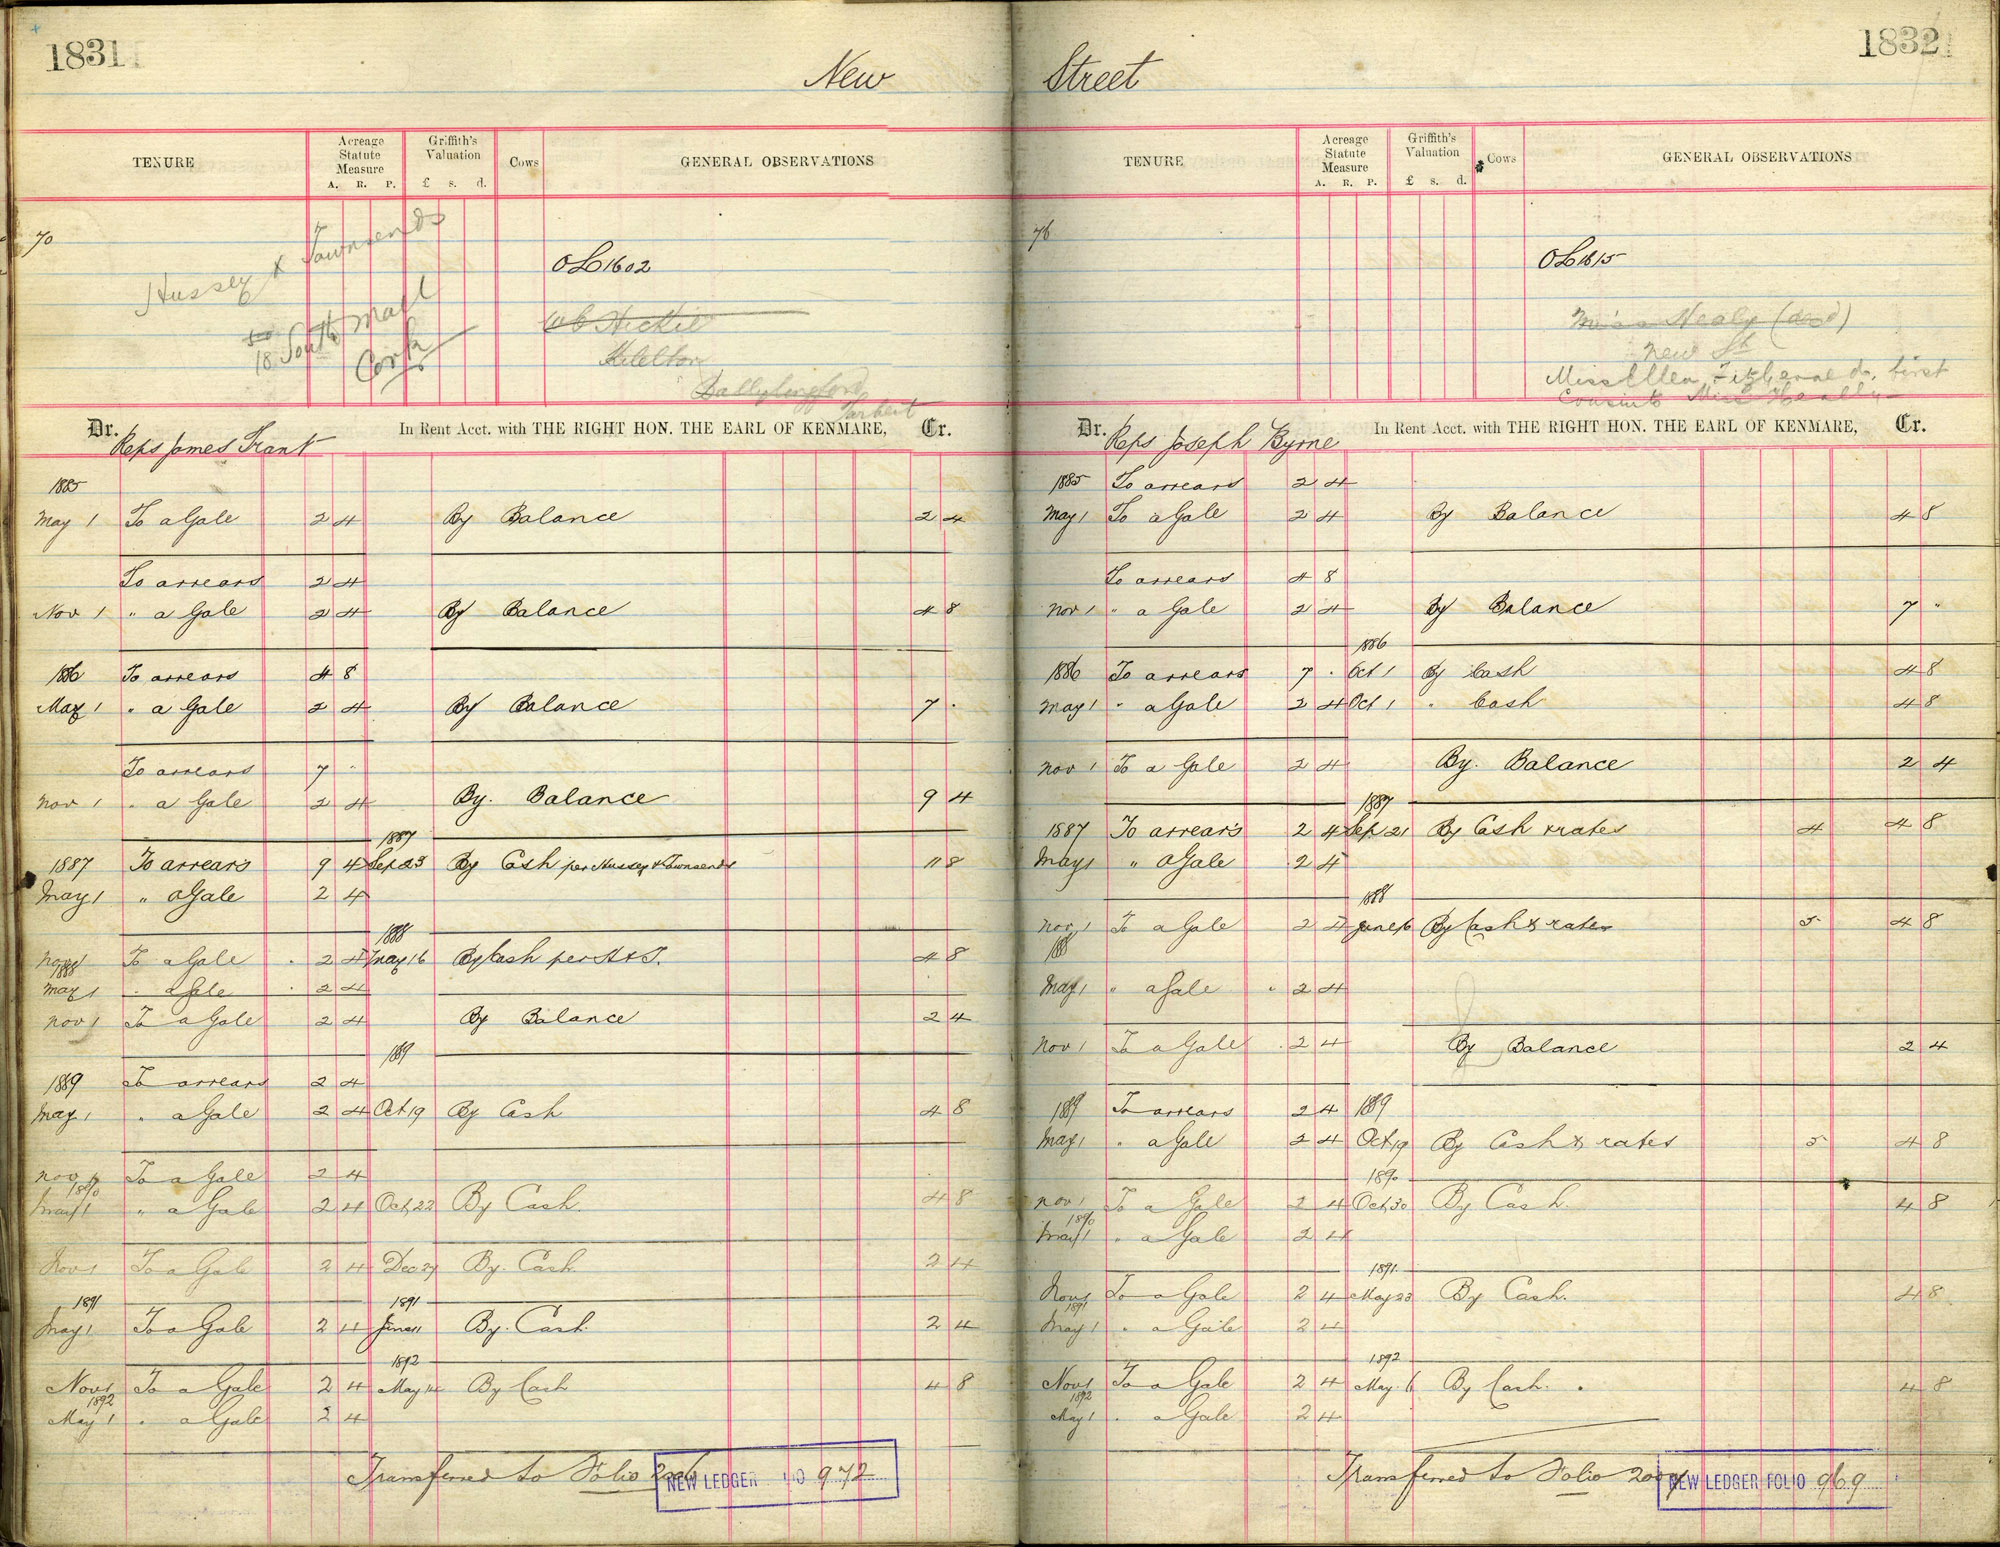 1831
New
TENURE
Acreage Statute Measure
A. R. P.
Griffith's Valuation
£ s. d.
Cows
GENERAL OBSERVATIONS
70
Hussey & Townsends
18 South Mall
Cork
OL 1602
Tarbert
Dr. Reps James Trant In Rent Acct. with THE RIGHT HON. THE EARL OF KENMARE, Cr.
1885
May 1 To a Gale 2 4 By Balance 2 4
To arrears 2 4
Nov 1 " a Gale 2 4 By Balance 4 8
1886 To arrears 4 8
May 1 " a Gale 2 4 By Balance 7 .
To arrears 7 "
Nov 1 " a Gale 2 4 By. Balance 9 4
1887
1887 To arrears 9 4 Sep 23 By Cash per Hussey & Townsends 11 8
May 1 " a Gale 2 4
1888
Nov 1 To a Gale 2 4 May 16 By Cash per H & T. 4 8
1888
May 1 " a Gale 2 4
Nov 1 To a Gale 2 4 By Balance 2 4
1889
1889 To arrears 2 4
May 1 " a Gale 2 4 Oct 19 By Cash 4 8
Nov 1 To a Gale 2 4
1890
May 1 " a Gale 2 4 Oct 22 By Cash. 4 8
Nov 1 To a Gale 2 4 Dec 27 By. Cash. 2 4
1891 1891
May 1 To a Gale 2 4 June 11 By. Cash. 2 4
1892
Nov 1 To a Gale 2 4 May 14 By Cash 4 8
1892
May 1 " a Gale 2 4
Transferred to Folio
NEW LEDGER FOLIO 972
1832
Street
TENURE
Acreage Statute Measure
A. R. P.
Griffith's Valuation
£ s. d.
Cows
GENERAL OBSERVATIONS
76
OL 1615
Miss Healy (dead)
New St
Miss Ellen Fitzgerald, first
Cousin to Miss Healy
Dr. Reps Joseph Byrne In Rent Acct. with THE RIGHT HON. THE EARL OF KENMARE, Cr.
1885 To arrears 2 4
May 1 To a Gale 2 4 By Balance 4 8
To arrears 4 8
Nov 1 " a Gale 2 4 By Balance 7 "
1886
1886 To arrears 7 . Oct 1 By Cash 4 8
May 1 " a Gale 2 4 Oct 1 " Cash 4 8
Nov 1 To a Gale 2 4 By. Balance 2 4
1887
1887 To arrears 2 4 Sep 21 By Cash & rates 4 4 8
May 1 " a Gale 2 4
1888
Nov 1 To a Gale 2 4 June 16 By Cash & rates 5 4 8
1888
May 1 " a Gale 2 4
Nov 1 To a Gale 2 4 By Balance 2 4
1889 To arrears 2 4 1889
May 1 " a Gale 2 4 Oct 19 By Cash & rates 5 4 8
1890
Nov 1 To a Gale 2 4 Oct 30 By Cash. 4 8
1890
May 1 " a Gale 2 4
1891
Nov 1 To a Gale 2 4 May 23 By Cash. 4 8
1891
May 1 " a Gale 2 4
1892
Nov 1 To a Gale 2 4 May 6 By Cash. 4 8
1892
May 1 " a Gale 2 4
Transferred to Folio
NEW LEDGER FOLIO 969